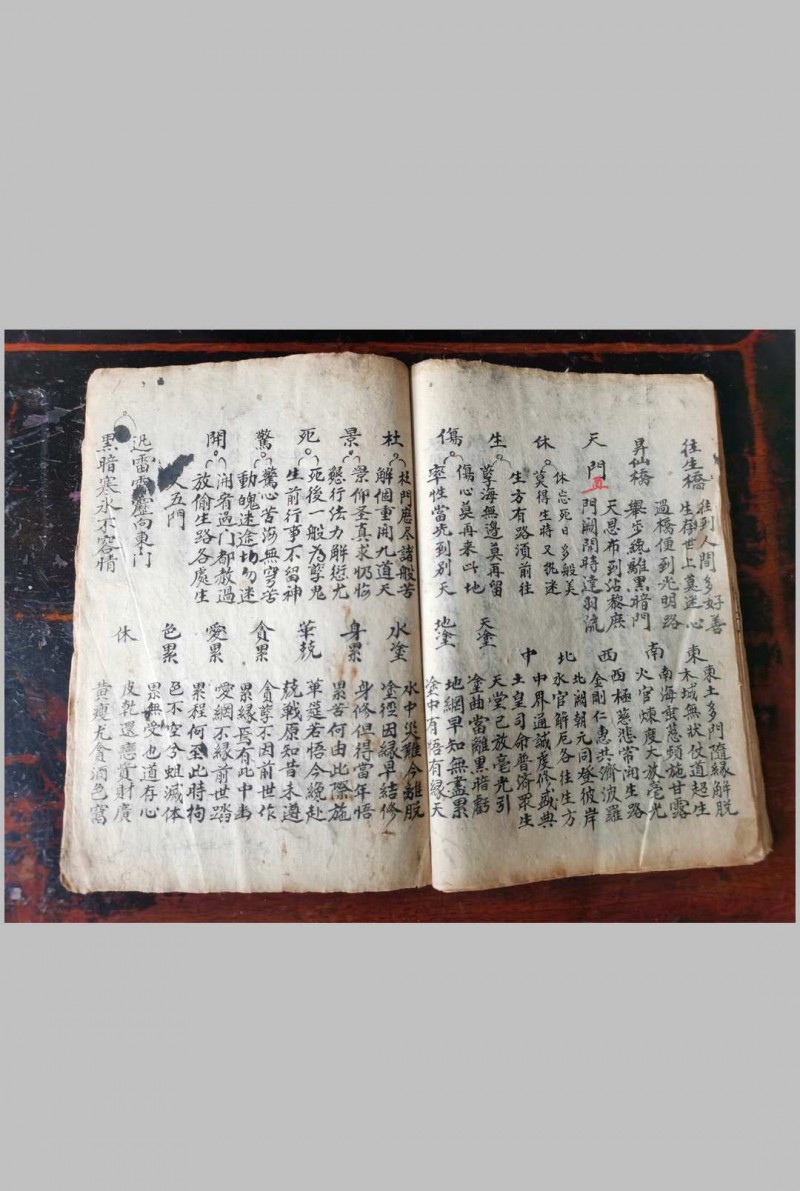 往生橋
往到人間多好善
生存世上莫迷心
過橋便到光明路
昇仙橋
舉步繞離黑暗門
天恩布到沾黎庶
天門
門闕開時達羽流
休
休忘死日多般美
莫得生時又執迷
生
生方有路須前往
孽海無邊莫再留
傷
傷心莫再来此地
率性當先到别天
東
東土多門隨緣解脱
木域無狀仗道超生
南
南海寬慈頻施甘露
火官煉度大放毫光
西
西極慈悲常開生路
金剛仁惠共濟波羅
北
北闕朝元同登彼岸
水官解厄各往生方
中
中界通誠虔修盛典
土皇司命普濟眾生
天塗
天堂已放毫光引
塗曲當離黑暗虧
地塗
地網早知無盡累
塗中有悟有緣天
杜
杜門歷尽諸般苦
解個重開九道天
景
景仰圣真求忏悔
懇行法力解愆尤
死
死後一般为孽鬼
生前行事不留神
驚
驚心苦海無穹苦
動魄迷途切勿迷
開
開宥過门都赦過
放偷生路各處生
五門
迅雷霹靂向東门
黑暗寒氷不容情
水塗
水中災難今離脱
塗徑因緣早結修
身累
身修但得當年悟
累苦何由此際施
華兢
華筵若悟今纔赴
兢戰原知昔未遵
貪累
貪孽不因前世作
累緣焉有此中尋
愛累
愛網不緣前世踏
累程何至此時拘
色累
色不空兮蛆減体
累無受也道存心
休
皮乾還戀貲財廣
黄瘦尤貪酒色窩